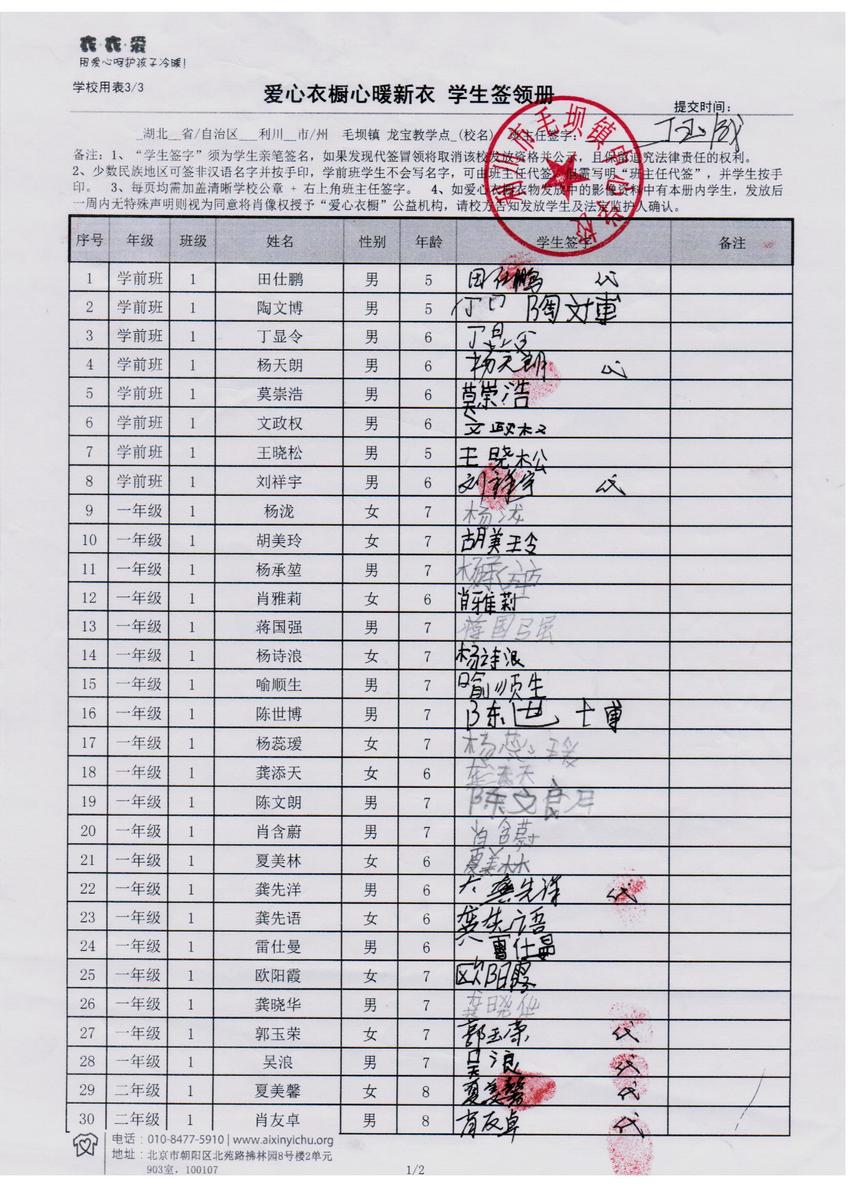 衣·衣·爱
用爱心呵护孩子冷暖!
学校用表3/3
爱心衣橱心暖新衣 学生签领册
提交时间:
_湖北__省/自治区___利川__市/州 毛坝镇 龙宝教学点_(校名) 班主任签字:
备注:1、“学生签字”须为学生亲笔签名,如果发现代签冒领将取消该校发放资格并公示,且保留追究法律责任的权利。
2、少数民族地区可签非汉语名字并按手印,学前班学生不会写名字,可由班主任代签,但需写明“班主任代签”,并学生按手
印。 3、每页均需加盖清晰学校公章 + 右上角班主任签字。 4、如爱心衣橱衣物发放中的影像资料中有本册内学生,发放后
一周内无特殊声明则视为同意将肖像权授予“爱心衣橱”公益机构,请校方告知发放学生及法定监护人确认。
序号 年级 班级 姓名 性别 年龄 学生签字 备注
1 学前班 1 田仕鹏 男 5 田仕鹏 代
2 学前班 1 陶文博 男 5 陶文博
3 学前班 1 丁显令 男 6 丁显令
4 学前班 1 杨天朗 男 6 杨天朗 代
5 学前班 1 莫崇浩 男 6 莫崇浩
6 学前班 1 文政权 男 6 文政权
7 学前班 1 王晓松 男 5 王晓松
8 学前班 1 刘祥宇 男 6 刘祥宇 代
9 一年级 1 杨泷 女 7 杨泷
10 一年级 1 胡美玲 女 7 胡美玲
11 一年级 1 杨承堃 男 7 杨承
12 一年级 1 肖雅莉 女 6 肖雅莉
13 一年级 1 蒋国强 男 7 蒋国强
14 一年级 1 杨诗浪 女 7 杨诗浪
15 一年级 1 喻顺生 男 7 喻顺生
16 一年级 1 陈世博 男 7 陈世博
17 一年级 1 杨蕊瑷 女 7 杨蕊瑷
18 一年级 1 龚添天 女 6 龚添天
19 一年级 1 陈文朗 男 7 陈文朗
20 一年级 1 肖含蔚 男 7 肖含蔚
21 一年级 1 夏美林 女 6 夏美林
22 一年级 1 龚先洋 男 6 龚先洋 代
23 一年级 1 龚先语 女 6 龚先语
24 一年级 1 雷仕曼 男 6 雷仕曼
25 一年级 1 欧阳霞 女 7 欧阳霞
26 一年级 1 龚晓华 男 7 龚晓华
27 一年级 1 郭玉荣 女 7 郭玉荣 代
28 一年级 1 吴浪 男 7 吴浪 代
29 二年级 1 夏美馨 女 8 夏美馨 代
30 二年级 1 肖友卓 男 8 肖友卓 代
电话:010-8477-5910 | www.aixinyichu.org
地址:北京市朝阳区北苑路拂林园8号楼2单元
903室,100107
1/2